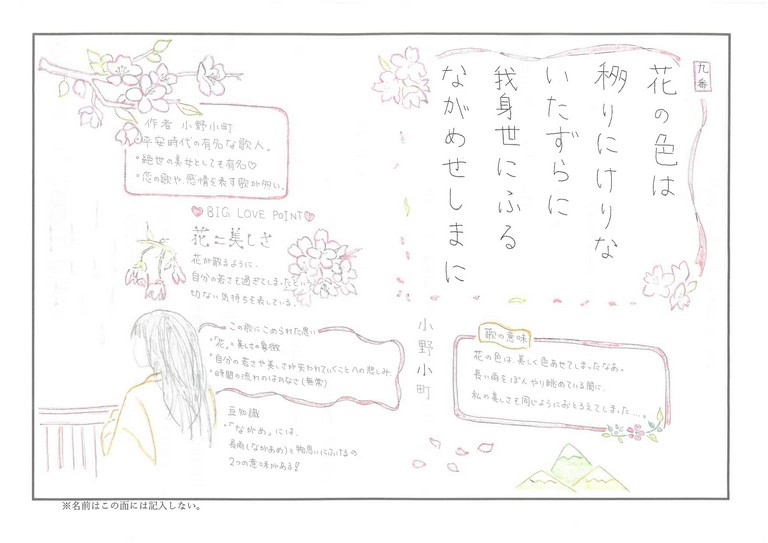 九番
花の色は
移りにけりな
いたずらに
我身世にふる
ながめせしまに
小野小町
歌の意味
花の色は、美しく色あせてしまったなあ。
長い雨をぼんやり眺めている間に、
私の美しさも同じようにおとろえてしまった…。
作者 小野小町
・平安時代の有名な歌人。
・絶世の美女としても有名♡
・恋の歌や、感情を表す歌が多い。
BIG LOVE POINT
花=美しさ
花が散るように、
自分の若さも過ぎてしまったという
切ない気持ちを表している。
この歌にこめられた思い
・「花」=美しさの象徴
・自分の若さや美しさが失われていくことへの悲しみ
・時間の流れのはかなさ(無常)
豆知識
・「ながめ」には、
長雨(ながあめ)と物思いにふけるの
2つの意味がある!
※名前はこの面には記入しない。